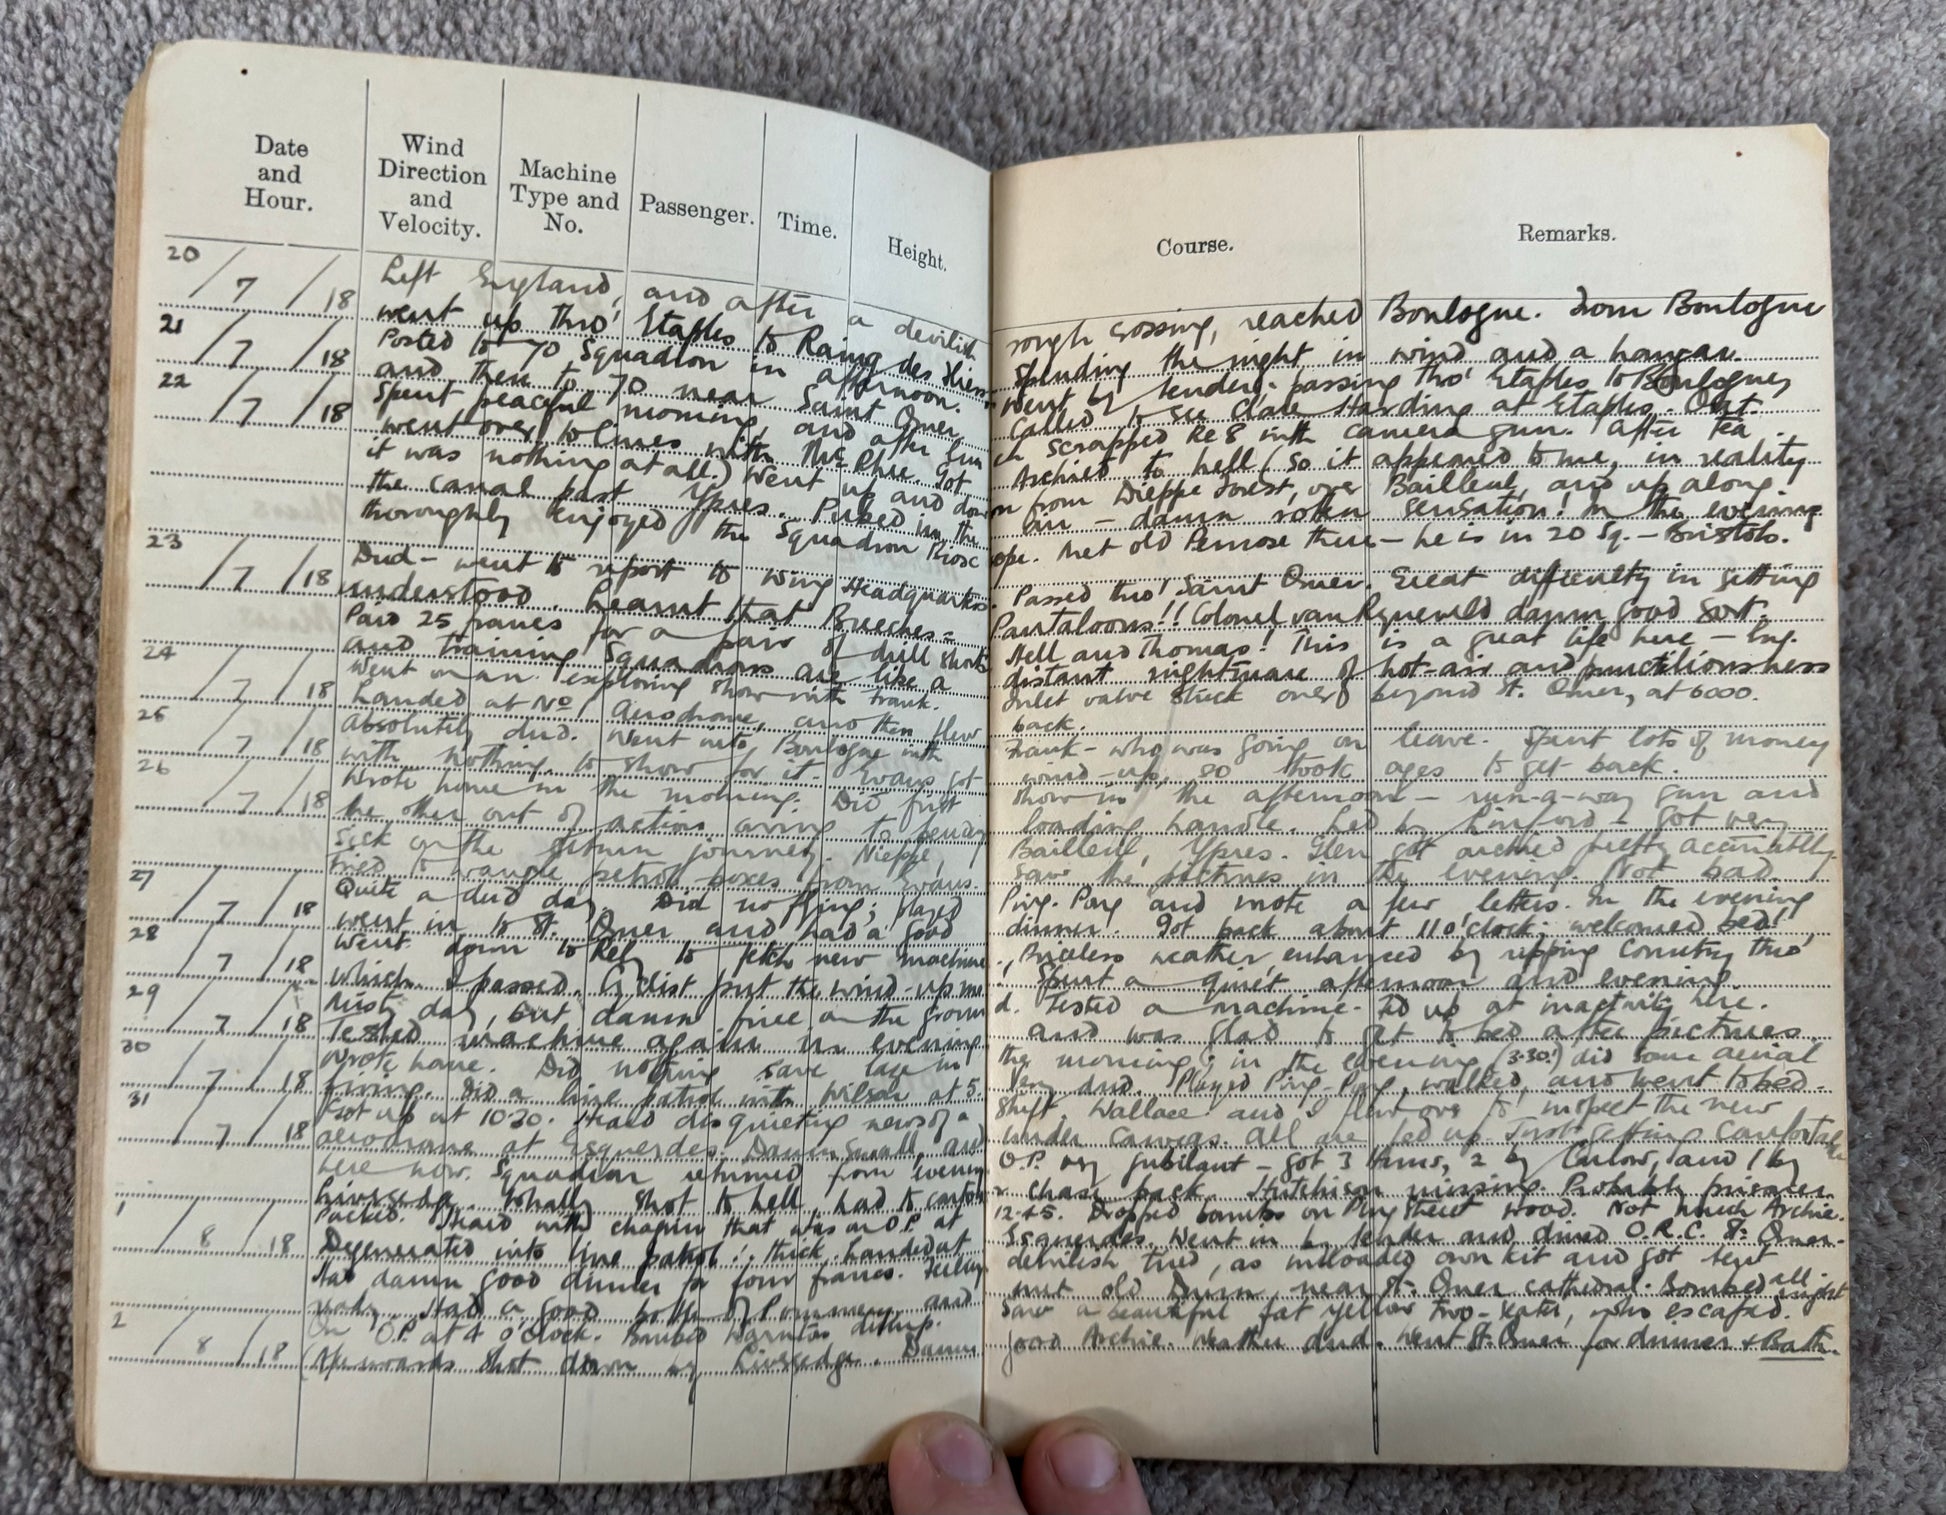 Date and Hour.
Wind Direction and Velocity.
Machine Type and No.
Passenger.
Time.
Height.
Course.
Remarks.
20/7/18 Left England, and after a devilish rough crossing, reached Boulogne. From Boulogne
went up thro' Etaples to Rang des Fliers spending the night in wind and a hangar.
21/7/18 Posted to 70 Squadron in afternoon. Went by tender, passing thro' Etaples to Boulogne,
and then to 70 near Saint Omer. Called to see Clare Harding at Etaples. Out.
22/7/18 Spent peaceful morning, and after lunch scrapped Re8 with camera gun. After tea
went over to lines with Got Archied to hell (so it appeared to me, in reality
it was nothing at all.) Went up and down from Dieppe Forest, over Bailleul, and up along
the canal past Ypres. Puked in the air - damn rotten sensation! In the evening
thoroughly enjoyed the Squadron Met old Penrose there - he is in 20 Sq. - Bristols.
23/7/18 Dud - went to report to Wing Headquarters. Passed thro' Saint Omer. Great difficulty in getting
understood. Learnt that Breeches = Pantaloons!! Colonel van Ryneveld damn good sort.
Paid 25 francs for a pair of drill shorts Hell and Thomas! This is a great life here - Eng.
and training Squadrons are like a distant nightmare of hot-air and punctiliousness
24/7/18 Went on an exploring show with Frank. Inlet valve stuck over beyond St. Omer, at 6000.
Landed at No 1 Aerodrome, and then flew back.
25/7/18 Absolutely dud. Went into Boulogne with Frank - who was going on leave. Spent lots of money
with nothing to show for it. Evans got wind-up, so took ages to get back.
26/7/18 Wrote home in the morning. Did first show in the afternoon - run-a-way gun and
the other out of action owing to loading handle. Led by Linford - Got very
sick on the return journey. Nieppe, Bailleul, Ypres. Glen got archied pretty accurately.
Tried to wangle petrol-boxes from Evans. Saw the pictures in the evening. Not bad.
27/7/18 Quite a dud day. Did nothing; played Ping-Pong and wrote a few letters. In the evening
went in to St. Omer and had a good dinner. Got back about 11 o'clock: welcomed bed!
28/7/18 Went down to Rely to fetch new machine, Priceless weather enhanced by ripping country thro'
which I passed. put the wind-up me. Spent a quiet afternoon and evening.
29/7/18 Misty day, but damn fine on the ground. Tested a machine - Fed up at inactivity here.
Tested machine again in evening and was glad to get to bed after pictures.
30/7/18 Wrote home. Did nothing save laze in the morning; in the evening (3.30!) did some aerial
firing. Did a line patrol with Wilson at 5. Very dud. Played Ping-Pong, walked, and went to bed.
31/7/18 Got up at 10.30. Heard disquieting news of a shift. Wallace and I flew over to inspect the new
aerodrome at Esquerdes. Damn small, and under canvas. All are fed up. Just getting comfortable
here now. Squadron returned from evening O.P. very jubilant - got 3 Huns, 2 by Carlow, and 1 by
Liversedge. Wholly shot to hell, had to chase back. Hutchison missing. Probably prisoner.
1/8/18 Packed. Heard with chagrin that I was on O.P. at 12.45. Dropped bombs on Wood. Not much Archie.
Degenerated into line patrol: thick. Landed at Esquerdes. Went in by tender and dined O.R.C. St. Omer.
Had damn good dinner for four francs. Feeling devilish tired, as unloaded own kit and got tent
ready. Had a good bottle of Pommery, and met old Dunn near St. Omer cathedral. Bombed all night
2/8/18 On O.P. at 4 o'clock. Bombed Warneton dump. Saw a beautiful fat yellow two-seater, who escaped.
(Afterwards shot down by Liversedge. Damn good Archie. Weather dud. Went St. Omer for dinner & Bath.